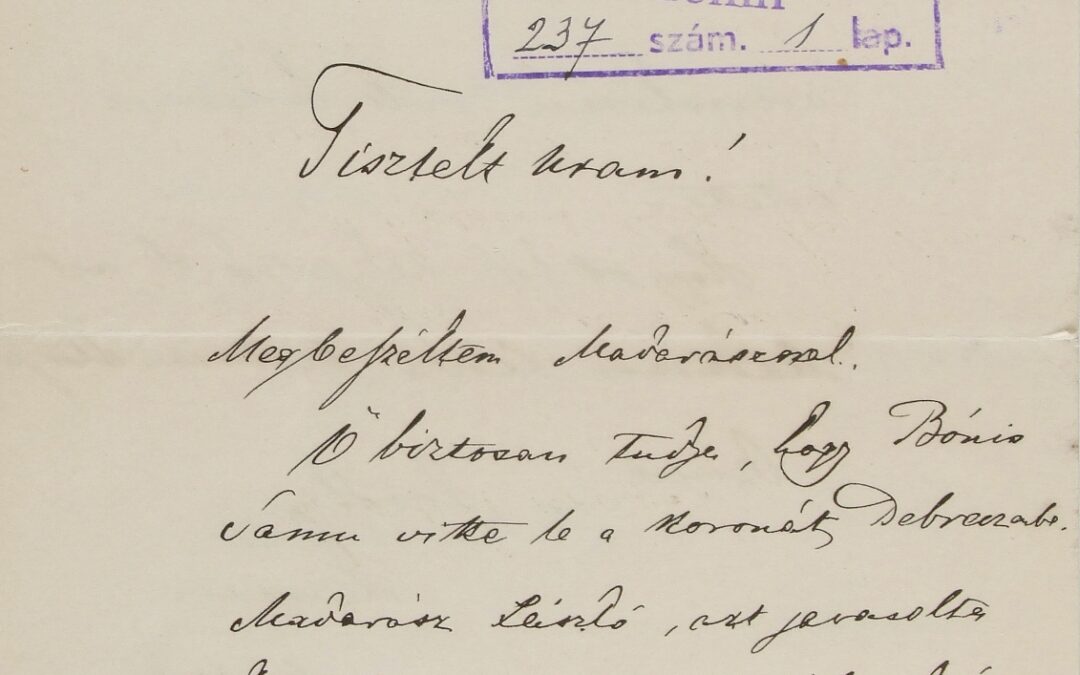 237 szám. 1 lap.
Tisztelt uram!
Megbeszéltem Madarászszal.
Ő biztosan tudja, hogy Bónis
Samu vitte le a koronát Debreczenbe.
Madarász László, azt javasolta